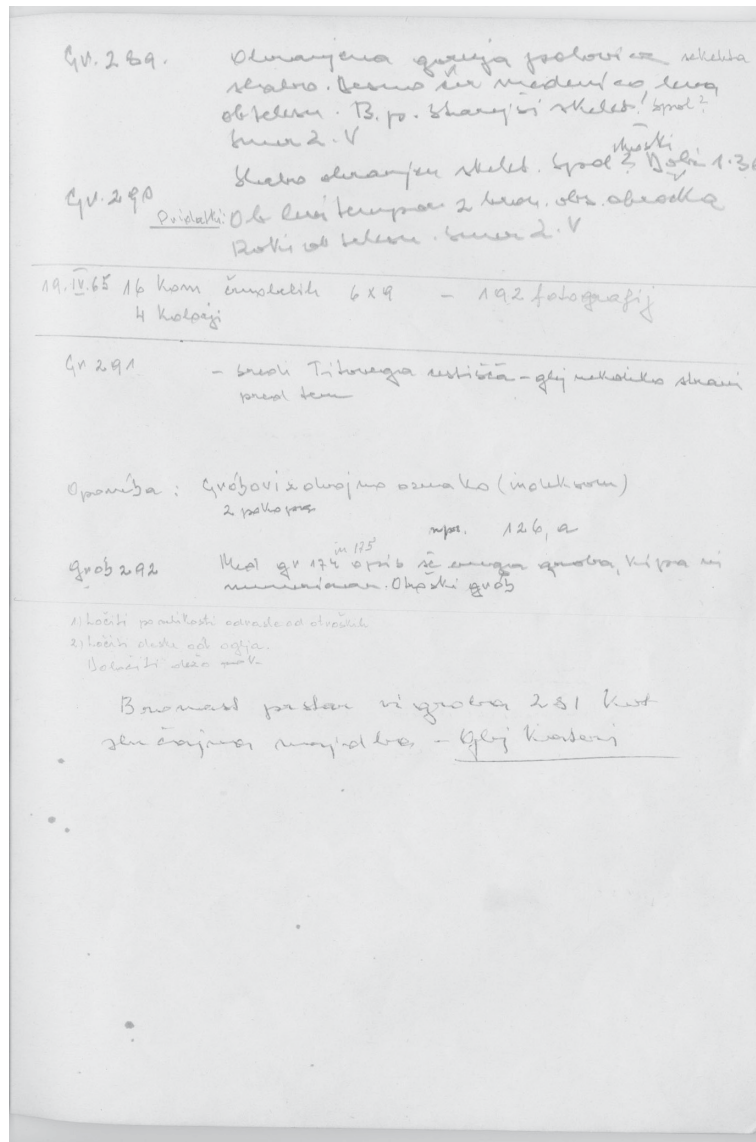 Gr. 289. Ohranjena gornja polovica skeleta
slabo. Desno čez medenico, leva
ob telesu. B. p. Starejši skelet! Spol?
Smer Z.V
Slabo ohranjen skelet. Spol? moški Dolž. 1.36
Gr. 290
Pridatki: Ob levi tempor. 2 bron. obs. obročka
Roki ob telesu. Smer Z.V
19.IV.65 16 kom črnobelih 6x9 – 192 fotografij
4 kolorji
Gr 291 – sredi Titovega – glej nekoliko strani
pred tem
Opomba: Grobovi z dvojno oznako (indeksom)
2 pokopa
npr. 126, a
in 175
Grob 292 Med gr 174 opis še enega groba, ki pa ni
numeriran. Otroški grob
1) Ločiti po velikosti odrasle od otroških
2) Ločiti deske od oglja.
Določiti
Bronast prstan iz groba 281 kot
slučajna najdba – Glej